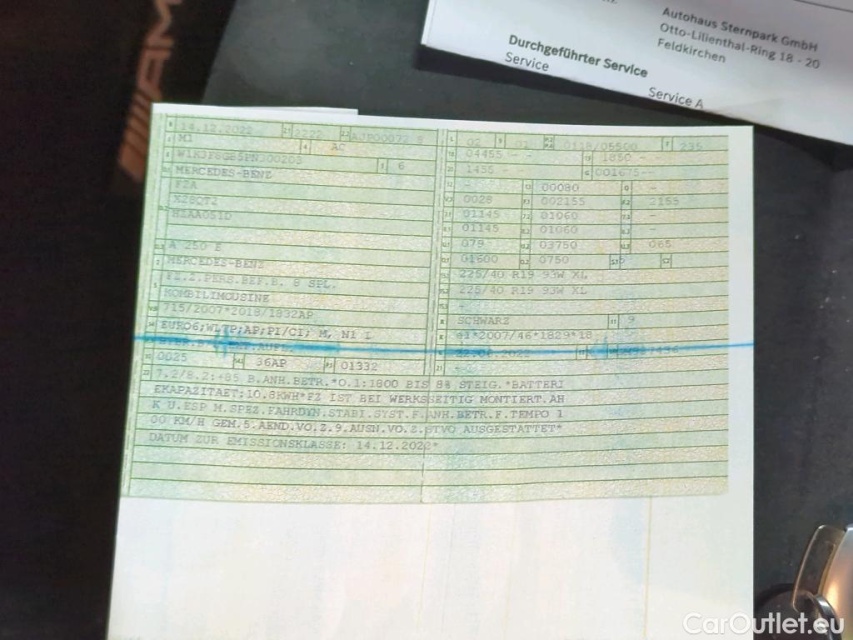 AMG
Autohaus Sternpark GmbH
Otto-Lilienthal-Ring 18 - 20
Feldkirchen
Durchgeführter Service
Service
Service A
14.12.2022 2222
M1 AC
6
MERCEDES-BENZ
F2A
H2AA051D
A 250 E
MERCEDES-BENZ
FZ.Z.PERS.BEF.B. 8 SPL.
KOMBILIMOUSINE
715/2007*2018/1832AP
EURO6;WLTP;AP;PI/CI; M, N1 I
0025 36AP 01332
02 01 0118/05500 235
04455 -- 1850 -
1455 -- 001675--
- 00080 -
0028 002155 2155
01145 01060 -
01145 01060 -
075 03750 065
01600 0750
225/40 R19 93W XL
225/40 R19 93W XL
SCHWARZ 9
e1*2007/46*1829*18
7.2/8.21:-85 B.ANH.BETR.*O.1:1800 BIS 8% STEIG.*BATTERI
EKAPAZITAET:10.8KWH*FZ IST BEI WERKSEITIG MONTIERT.AH
K U.ESP M.SPEZ.FAHRDYN.STABI.SYST.F.ANH.BETR.F.TEMPO 1
00 KM/H GEM.5.AEND.VO.Z.9.AUSN.VO.Z.STVO AUSGESTATTET*
DATUM ZUR EMISSIONSKLASSE: 14.12.2022*
CarOutlet.eu